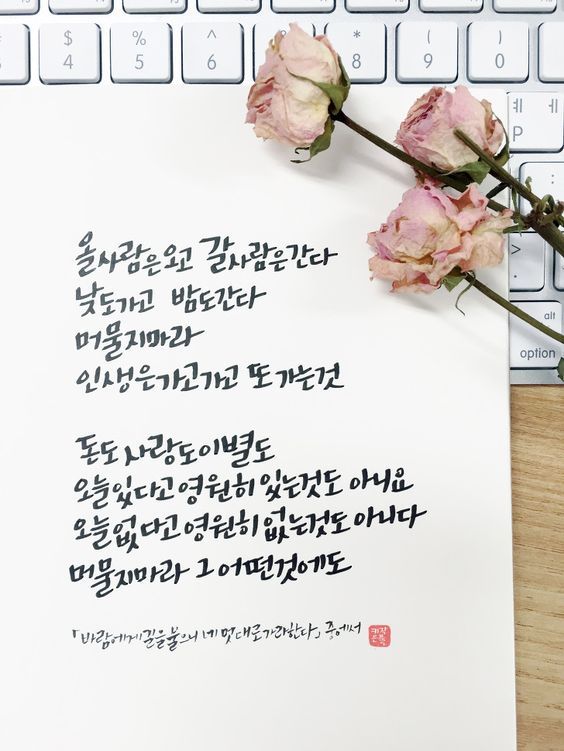 $ % ^ * ( )
4 5 6 8 9 0
ㅖ ㅔ
P
:
;
>
.
alt
option
올사람은오고 갈사람은간다
낮도가고 밤도간다
머물지마라
인생은가고가고 또가는것
돈도사랑도이별도
오늘있다고영원히있는것도아니요
오늘없다고영원히없는것도아니다
머물지마라 그어떤것에도
「바람에게길을물으니네멋대로가라한다」중에서